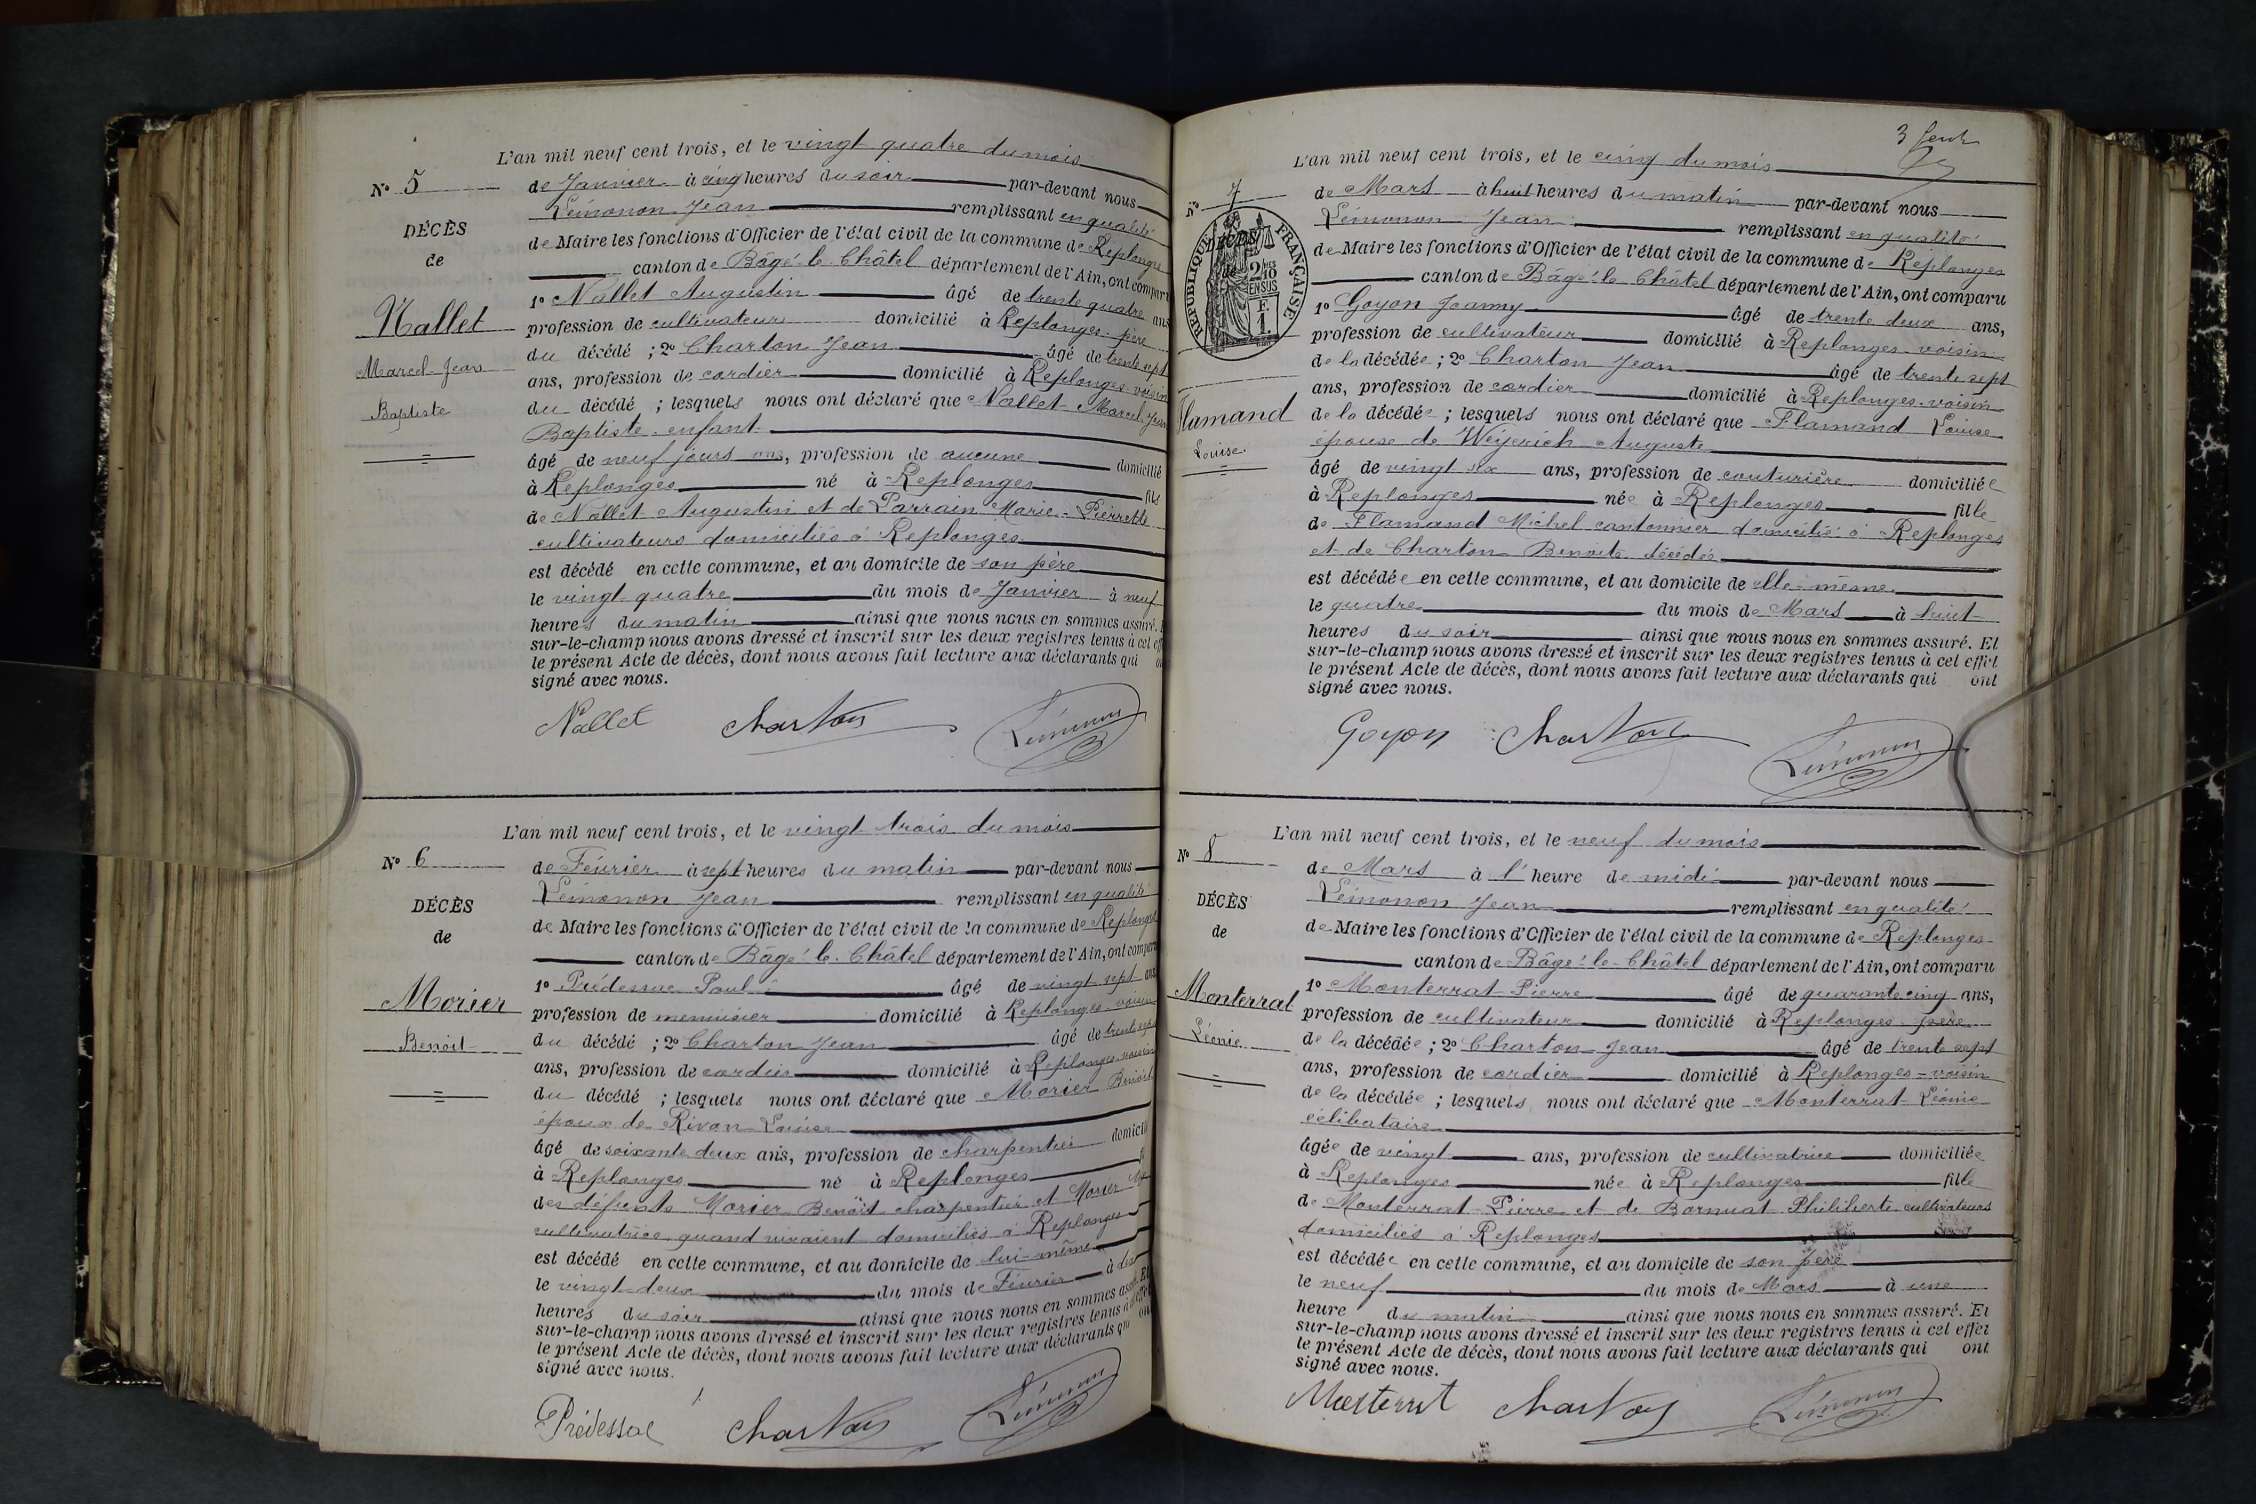 L'an mil neuf cent trois, et le vingt quatre du mois
N° 5
de Janvier à cinq heures du soir par-devant nous
Lémonon Jean remplissant en qualité
DÉCÈS
de Maire les fonctions d'Officier de l'état civil de la commune de Replonges
de
canton de Bâgé-le-Châtel département de l'Ain, ont comparu
1° Nallet Augustin âgé de trente quatre ans
Nallet
profession de cultivateur domicilié à Replonges père
du décédé ; 2° Charton Jean âgé de trente sept
Marcel-Jean
ans, profession de cordier domicilié à Replonges voisin
Baptiste
du décédé ; lesquels nous ont déclaré que Nallet Marcel Jean
Baptiste enfant
âgé de neuf jours ans, profession de aucune domicilié
à Replonges né à Replonges fils
de Nallet Augustin et de Parrain Marie-Pierrette
cultivateurs domiciliés à Replonges
est décédé en cette commune, et au domicile de son père
le vingt quatre du mois de Janvier à neuf
heures du matin ainsi que nous nous en sommes assuré.
sur-le-champ nous avons dressé et inscrit sur les deux registres tenus à cet
le présent Acte de décès, dont nous avons fait lecture aux déclarants qui
signé avec nous.
Nallet Charton Lémonon
L'an mil neuf cent trois, et le vingt trois du mois
N° 6
de Février à sept heures du matin par-devant nous
Lémonon Jean remplissant en qualité
DÉCÈS
de Maire les fonctions d'Officier de l'état civil de la commune de Replonges
de
canton de Bâgé-le-Châtel département de l'Ain, ont comparu
1° Paul âgé de vingt sept ans
Morier
profession de menuisier domicilié à Replonges voisin
Benoit
du décédé ; 2° Charton Jean âgé de trente sept
ans, profession de cordier domicilié à Replonges voisin
du décédé ; lesquels nous ont déclaré que Morier Benoit
époux de Rivon Louise
âgé de soixante deux ans, profession de charpentier domicilié
à Replonges né à Replonges
des défunts Morier Benoît charpentier et Morier
cultivatrice quand vivaient domiciliés à Replonges
est décédé en cette commune, et au domicile de lui-même
le vingt deux du mois de Février à
heures du soir ainsi que nous nous en sommes assuré. Et
sur-le-champ nous avons dressé et inscrit sur les deux registres tenus à cet effet
le présent Acte de décès, dont nous avons fait lecture aux déclarants qui ont
signé avec nous.
Charton Lémonon
3
L'an mil neuf cent trois, et le cinq du mois
N° 7
de Mars à huit heures du matin par-devant nous
Lémonon Jean remplissant en qualité
DÉCÈS
de
RÉPUBLIQUE FRANÇAISE
2/10 EN SUS
F. 1.
de Maire les fonctions d'Officier de l'état civil de la commune de Replonges
canton de Bâgé-le-Châtel département de l'Ain, ont comparu
1° Goyon Joanny âgé de trente deux ans,
profession de cultivateur domicilié à Replonges voisin
de la décédée ; 2° Charton Jean âgé de trente sept
ans, profession de cordier domicilié à Replonges voisin
Flamand
de la décédée ; lesquels nous ont déclaré que Flamand Louise
Louise
épouse de Weyerich Auguste
âgé de vingt six ans, profession de couturière domiciliée
à Replonges née à Replonges fille
de Flamand Michel cantonnier domicilié à Replonges
et de Charton Benoite décédée
est décédée en cette commune, et au domicile de elle-même
le quatre du mois de Mars à huit
heures du soir ainsi que nous nous en sommes assuré. Et
sur-le-champ nous avons dressé et inscrit sur les deux registres tenus à cet effet
le présent Acte de décès, dont nous avons fait lecture aux déclarants qui ont
signé avec nous.
Goyon Charton Lémonon
L'an mil neuf cent trois, et le neuf du mois
N° 8
de Mars à l'heure de midi par-devant nous
Lémonon Jean remplissant en qualité
DÉCÈS
de Maire les fonctions d'Officier de l'état civil de la commune de Replonges
de
canton de Bâgé-le-Châtel département de l'Ain, ont comparu
1° Monterrat Pierre âgé de quarante cinq ans,
Monterrat
profession de cultivateur domicilié à Replonges père
Léonie
de la décédée ; 2° Charton Jean âgé de trente sept
ans, profession de cordier domicilié à Replonges-voisin
de la décédée ; lesquels nous ont déclaré que Monterrat Léonie
célibataire
âgée de vingt ans, profession de cultivatrice domiciliée
à Replonges née à Replonges fille
de Monterrat Pierre et de Bornuat Philiberte cultivateurs
domiciliés à Replonges
est décédée en cette commune, et au domicile de son père
le neuf du mois de Mars à une
heure du matin ainsi que nous nous en sommes assuré. Et
sur-le-champ nous avons dressé et inscrit sur les deux registres tenus à cet effet
le présent Acte de décès, dont nous avons fait lecture aux déclarants qui ont
signé avec nous.
Monterrat Charton Lémonon